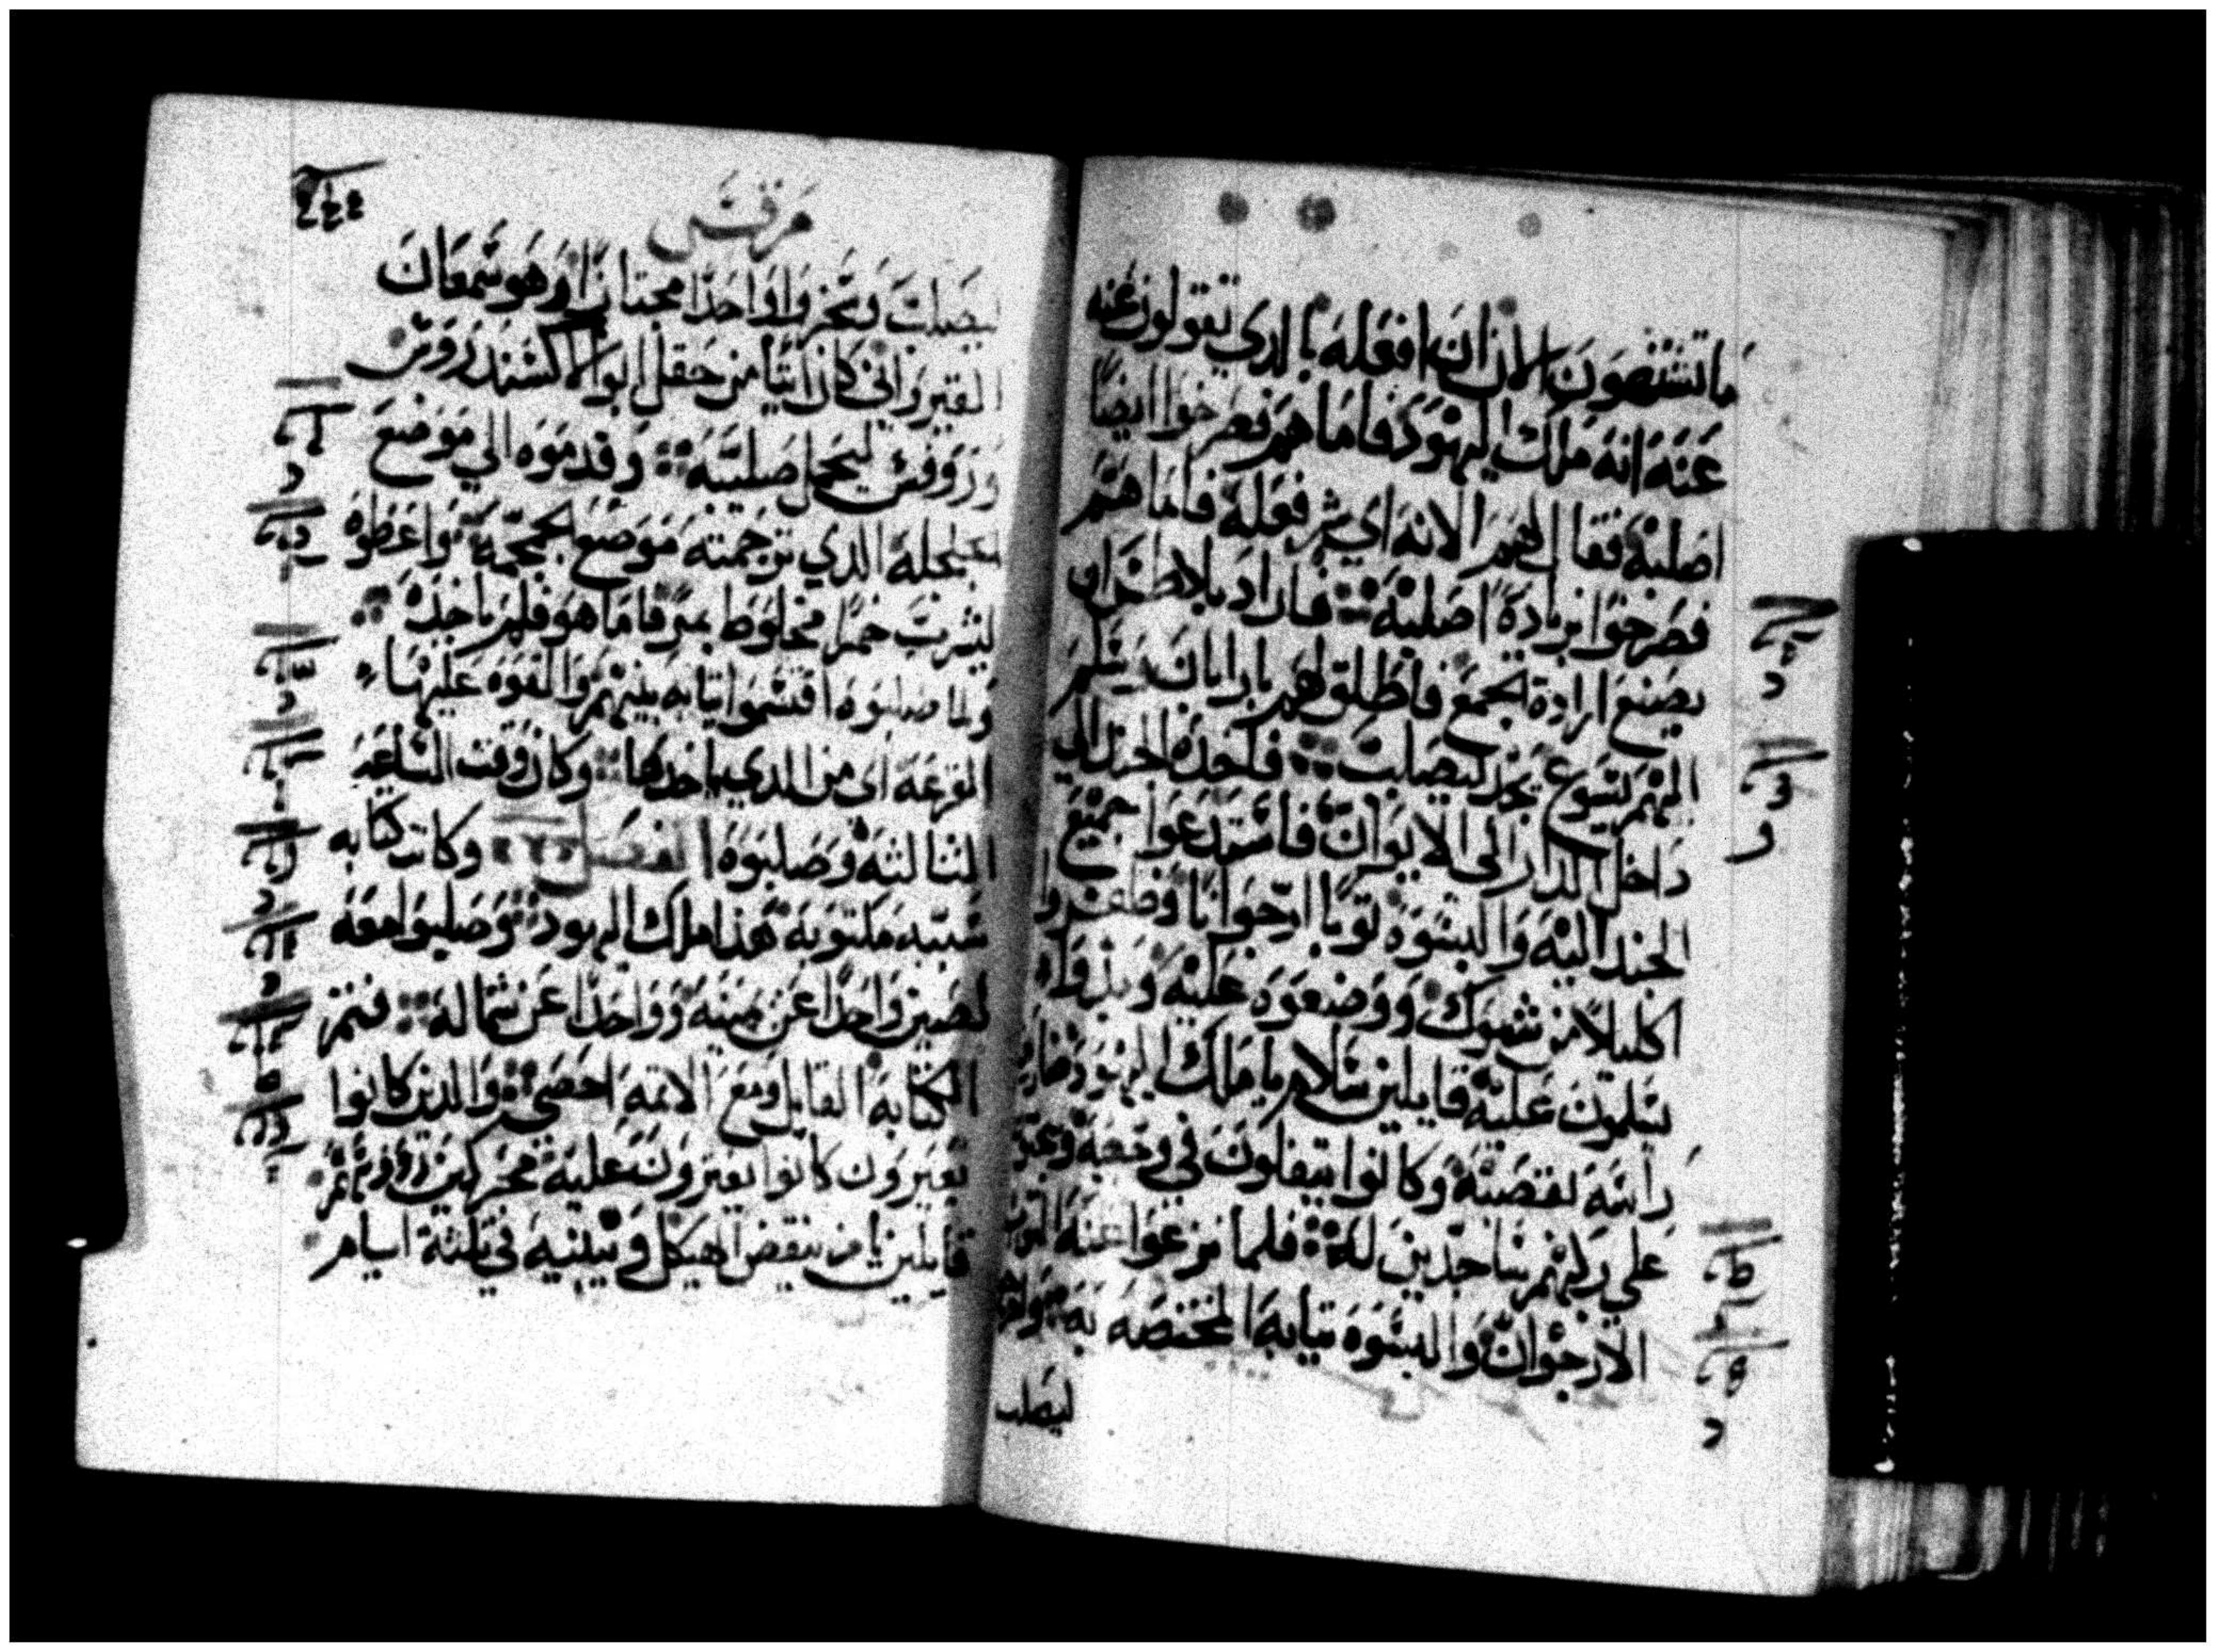 ما تشتهون الان ان افعله بالدي تقولون عنه
عنه انه ملك اليهود فاما هم فصرخوا ايضا
اصلبه فقال لهم الانه اي شر فعله فاما هم
فصرخوا بزيادة اصلبه فاراد بلاطس ان
يصنع ارادة الجمع فاطلق لهم بارابان وسلم
اليهم يسوع يجلد ليصلب فاخده الجند الي
داخل الدار الى الايوان فاستدعوا جميع
الجند اليه والبسوه توبا ارجوانا وضفروا
اكليلا من شوك ووضعوه عليه وبدوا
يسلمون عليه قايلين سلام يا ملك اليهود
راسه بقصبة وكانوا يتفلون في وجهه
علي ركبهم ساجدين له فلما نزعوا عنه
الارجوان والبسوه تيابه المختصه به
ليصلب
مرقس
ليصلب وسخروا واحدا مجتازا وهو سمعان
القيرواني كان اتيا من حقل ابو الاكسندروس
وروفس ليحمل صليبه وقدموه الي موضع
الجلجله الدي ترجمته موضع الجمجمة واعطوه
ليشرب خمرا مخلوط بمر فاما هو فلم ياخده
ولما صلبوه اقتسموا تيابه بينهم والقوه عليها
القرعه اي من الدي ياخدها وكان وقت الساعة
التالته وصلبوه الفصل وكانت كتابه
سببه مكتوبة هدا ملك اليهود وصلبوا معه
لصين واحدا عن يمينه وواحدا عن شماله فتم
الكتابه القايل ومع الاتمه احصي والدين كانوا
يعبرون كانوا يفترون عليه محركين رووسهم
قايلين يا من ينقض الهيكل ويبنيه في تلتة ايام